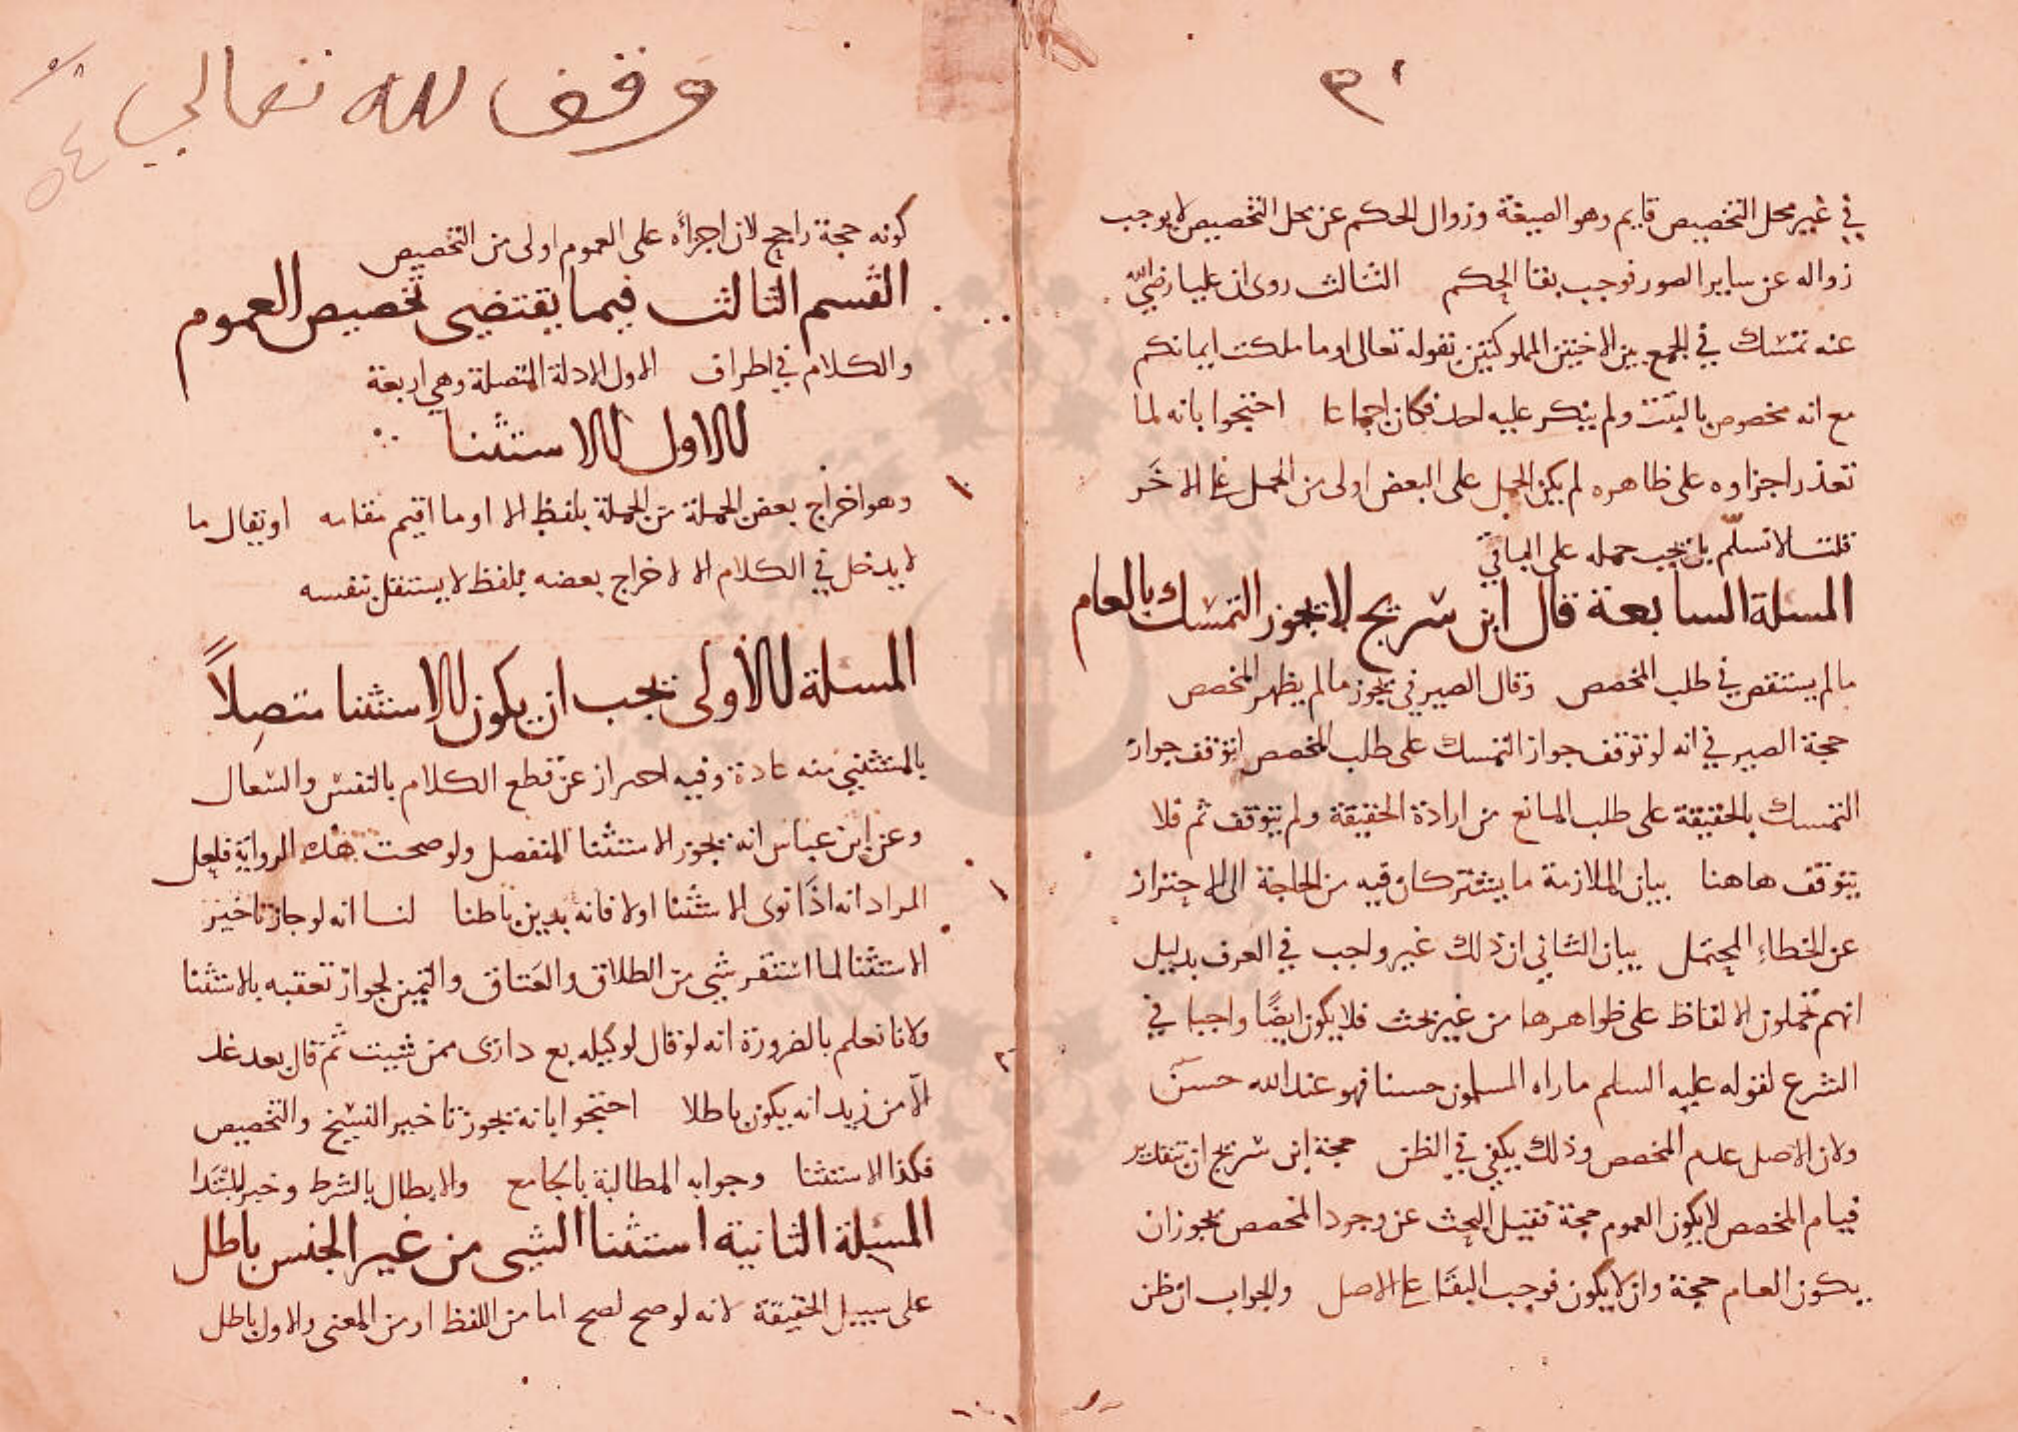 في غير محل التخصيص قايم وهو الصيغة وزوال الحكم عن محل التخصيص لا يوجب
زواله عن ساير الصور فوجب بقا الحكم الثالث روى ان عليا رضي الله
عنه تمسك في الجمع بين الاختين المملوكتين بقوله تعالى او ما ملكت ايمانكم
مع انه مخصوص بالبنت ولم ينكر عليه احد فكان اجماعا احتجوا بانه لما
تعذر اجراوه على ظاهره لم يكن الحمل على البعض اولى من الحمل على الاخر
قلت لا نسلم بل يجب حمله على الباقي
المسلة السابعة قال ابن سريج لا يجوز التمسك بالعام
ما لم يستقص في طلب المخصص وقال الصيرفي يجوز ما لم يظهر المخصص
حجة الصيرفي انه لو توقف جواز التمسك على طلب المخصص لتوقف جواز
التمسك بالحقيقة على طلب المانع من ارادة الحقيقة ولم يتوقف ثم فلا
يتوقف هاهنا بيان الملازمة ما يشتركان فيه من الحاجة الى الاحتراز
عن الخطاء المحتمل بيان الثاني ان ذلك غير واجب في العرف بدليل
انهم يحملون الالفاظ على ظواهرها من غير بحث فلا يكون ايضًا واجبا في
الشرع لقوله عليه السلم ما راه المسلمون حسنا فهو عند الله حسن
ولان الاصل عدم المخصص وذلك يكفي في الظن حجة ابن سريج ان بتقدير
قيام المخصص لا يكون العموم حجة فقبل البحث عن وجود المخصص يجوز ان
يكون العام حجة وان لا يكون فوجب البقا على الاصل والجواب ان ظن
وقف لله تعالى
٥٤
كونه حجة راجح لان اجراه على العموم اولى من التخصيص
القسم الثالث فيما يقتضي تخصيص العموم
والكلام في اطراف الاول الادلة المتصلة وهي اربعة
الاول الاستثنا
وهو اخراج بعض الجملة من الجملة بلفظ الا او ما اقيم مقامه او يقال ما
لا يدخل في الكلام الا لاخراج بعضه بلفظ لا يستقل بنفسه
المسلة الأولى يجب ان يكون الاستثنا متصِلاً
بالمستثنى منه عادة وفيه احتراز عن قطع الكلام بالنفس والسعال
وعن ابن عباس انه يجوز الاستثنا المنفصل ولو صحت هذه الرواية فلعل
المراد انه اذا نوى الاستثنا اولا فانه يدين باطنا لنا انه لو جاز تاخير
الاستثنا لما استقر شي من الطلاق والعتاق واليمين لجواز تعقبه بالاستثنا
ولانا نعلم بالضرورة انه لو قال لوكيله بع دارى ممن شيت ثم قال بعد غد
الّا من زيد انه يكون باطلا احتجوا بانه يجوز تاخير النسخ والتخصيص
فكذا الاستثنا وجوابه المطالبة بالجامع والابطال بالشرط وخبر المبتدا
المسئلة الثانية استثنا الشي من غير الجنس باطل
على سبيل الحقيقة لانه لو صح لصح اما من اللفظ او من المعنى والاول باطل